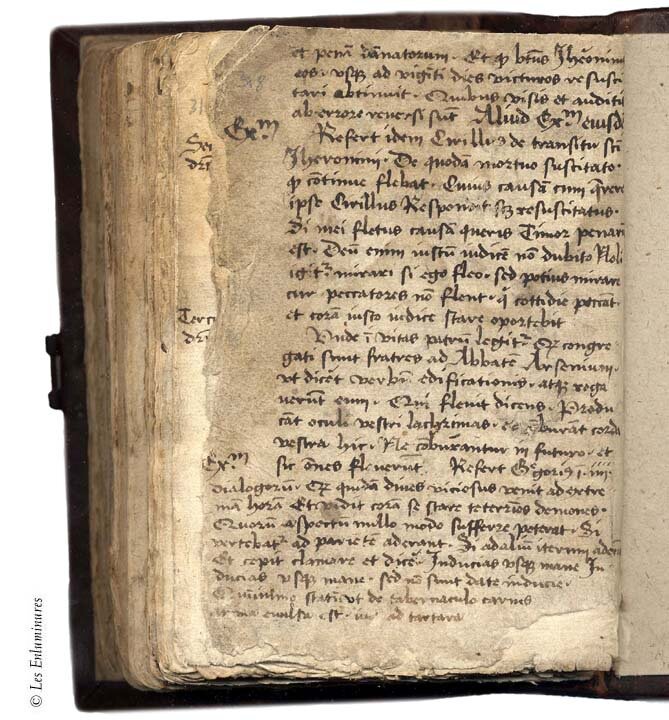 et penam damnatorum. Et qd btus Jheronim
eos. vsq ad vigiti dies victuros resusci
tari obtinuit. Quibus visis et auditis
ab errore reversi sunt Aliud Exm eiusd
Exm
Refert idem Cirillus de transitu sti
Jheronimi. De quodam mortuo suscitato.
qd continue flebat. Cuius causam cum querer
ipse Cirillus Respondit resuscitatus.
Si mei fletus causam queris Timor penar
est. Deum enim iustum iudicem non dubito Noli
igitr mirari si ego fleo. sed potius mirare
cur peccatores non flent. q cottidie peccat
et cora iusto iudice stare oportebit
Vnde i vitas patrum legitr Qd congre
gati sunt fratres ad Abbatem Arsenium.
vt dicet verbum edificationis. atq roga
verunt eum. Qui flevit dicens. Produ
cat oculi vestri lachrimas. comburant corda
vestra hic. Ne comburantur in futuro. et
sic omnes fleverunt. Refert Gregori9 i. iiii.
Exm
dialogorum. Qd quidam dives viciosus venit ad extre
ma hora Et vidit cora se stare teterrios demones.
Quorum aspectum nullo modo sufferre poterat. Si
vertebatr ad pariete aderant. Si ad alium iterum adera
Et cepit clamare et dice. Inducias vsq mane In
ducias vsq mane. sed non sunt date inducie.
statim de tabernaculo carnis
evulsa est. ad tartara
Terci
© Les Enluminures